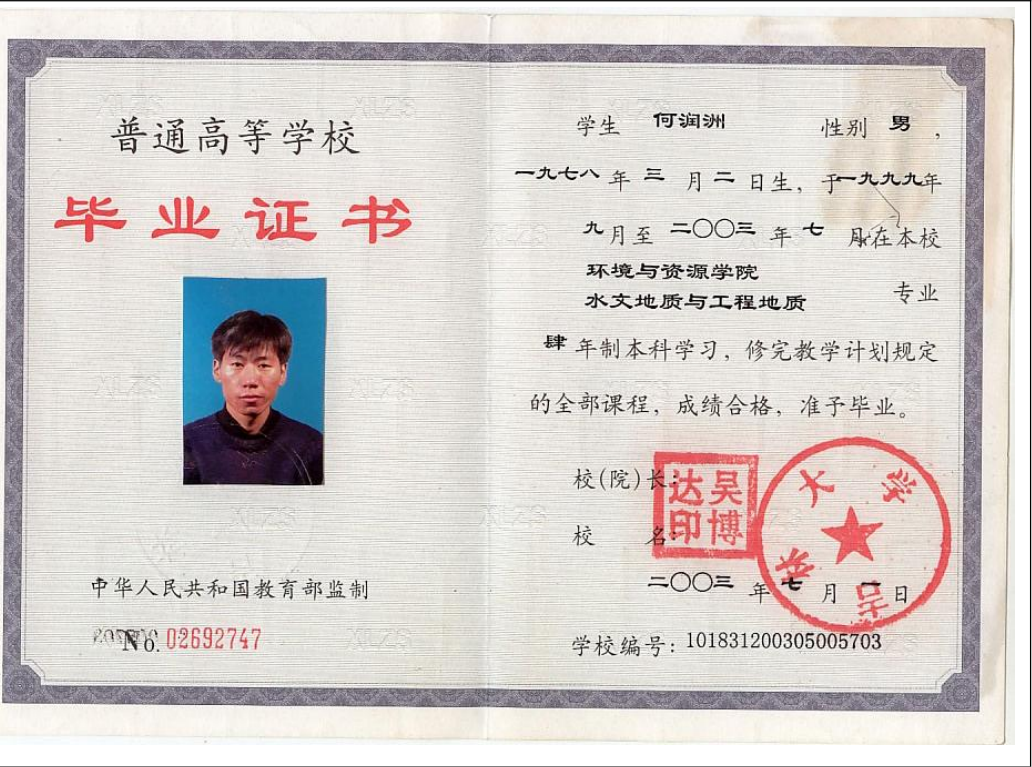 普通高等学校
毕业证书
中华人民共和国教育部监制
No. 02692747
学生 何润洲 性别 男，
一九七八 年 三 月 二 日生，于一九九九年
九月至 二〇〇三 年 七 月在本校
环境与资源学院
水文地质与工程地质 专业
肆 年制本科学习，修完教学计划规定
的全部课程，成绩合格，准予毕业。
校(院)长：
吴博
达印
校 名：
二〇〇三 年 七 月 一 日
学校编号：101831200305005703